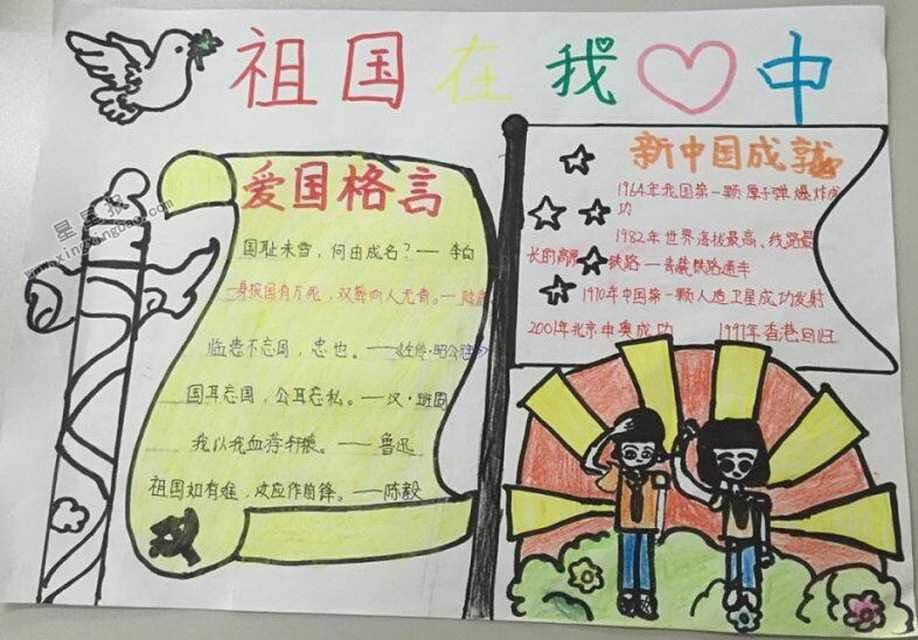 祖国在我中
爱国格言
国耻未雪，何由成名？——李白
一身报国有万死，双鬓向人无青。——陆游
临患不忘国，忠也。——《左传·昭公元年》
国耳忘国，公耳忘私。——汉·班固
我以我血荐轩辕。——鲁迅
祖国如有难，汝应作前锋。——陈毅
新中国成就
1964年我国第一颗原子弹爆炸成
功
1982年世界海拔最高、线路最
长的高原铁路—青藏铁路通车
1970年中国第一颗人造卫星成功发射
2001年北京申奥成功 1997年香港回归
星星报
www.xingxingbao.com